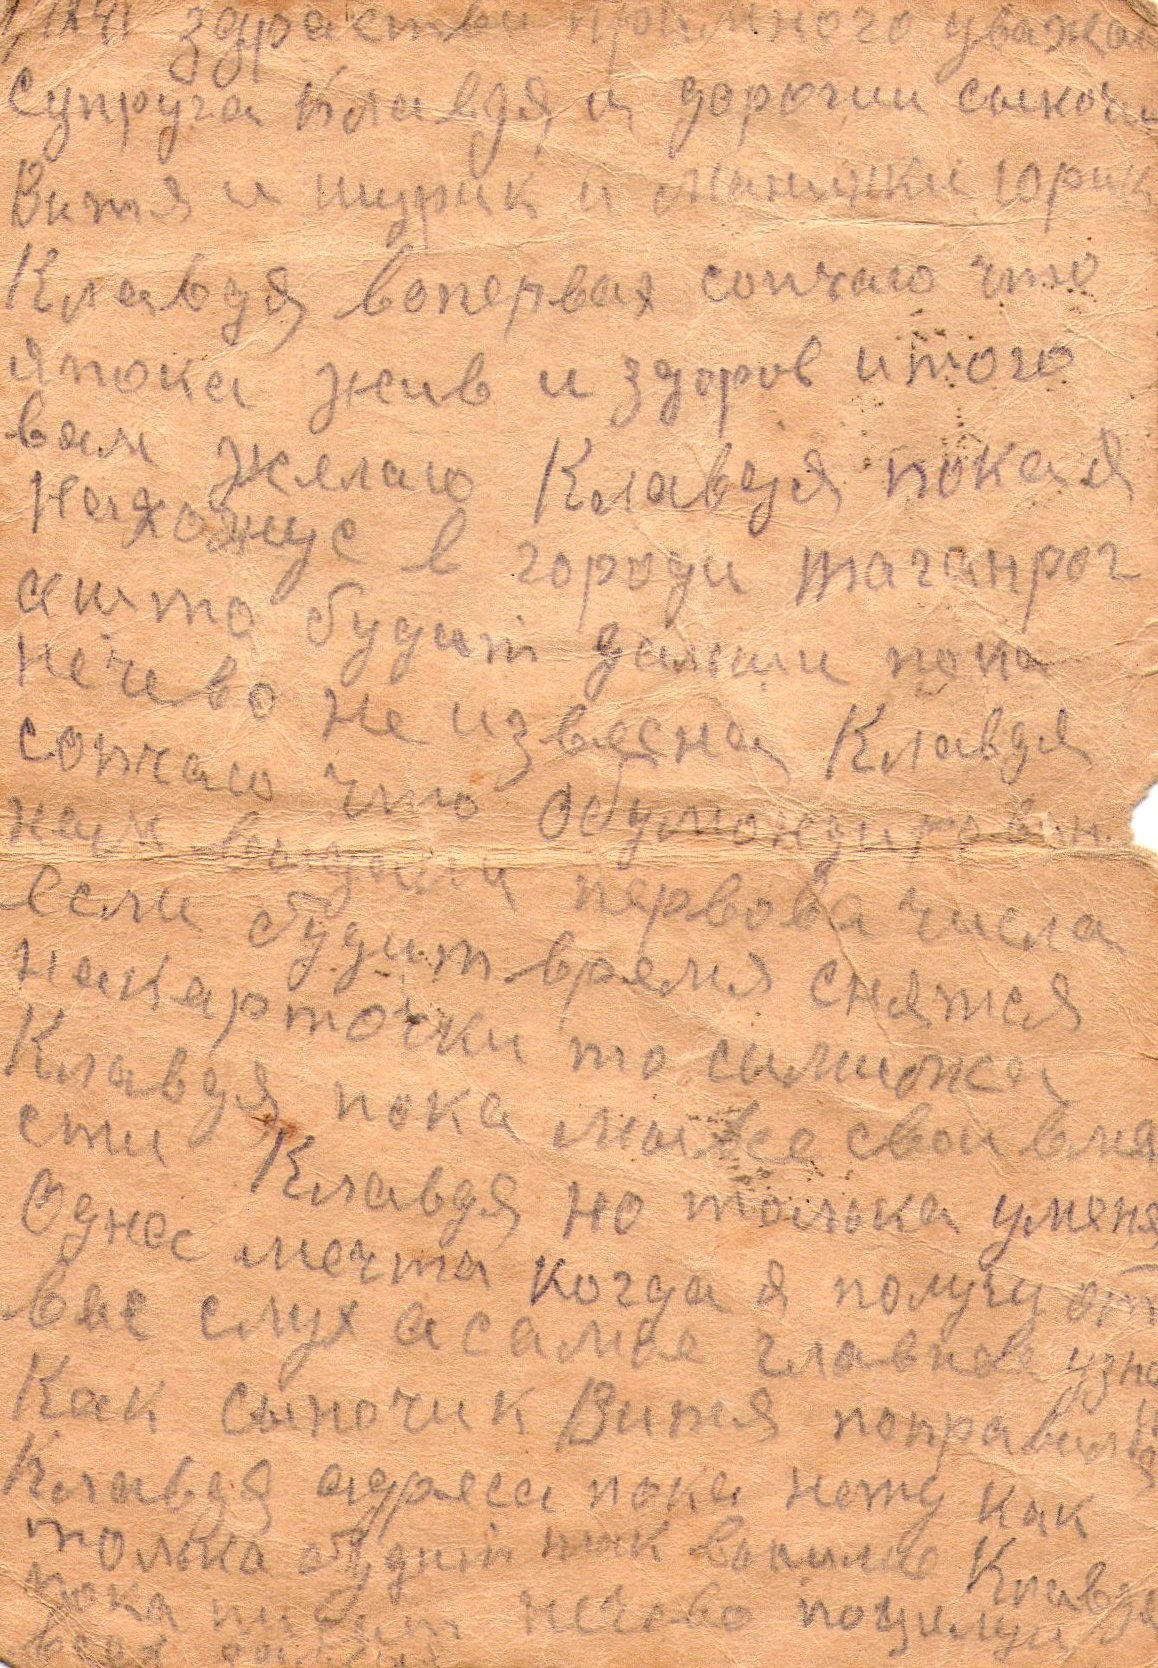 1941 здраствы про многа уважа
Супруга Клавдя и дорогии сыночи
Витя и шурик и манинки юрик
Клавдя вопервах сопчаю что
я пока жив и здоров итого
вам жялаю Клавдя покая
нахожус в городи таганрог
ашто будит дальши пока
нечево не извесна Клавдя
сопчаю что Обумондирован
нам выдали первова числа
если будит время снятся
накарточки то
Клавдя пока мы все свои вме
сти Клавдя но толька уменя
Одна мечта когда я получу от
вас слух а самое главное узна
Как сыночик Витя поправил
Клавдя адреса пока нету как
только будит так вышлю Клавдя
пока писат нечево поцелуй
всех